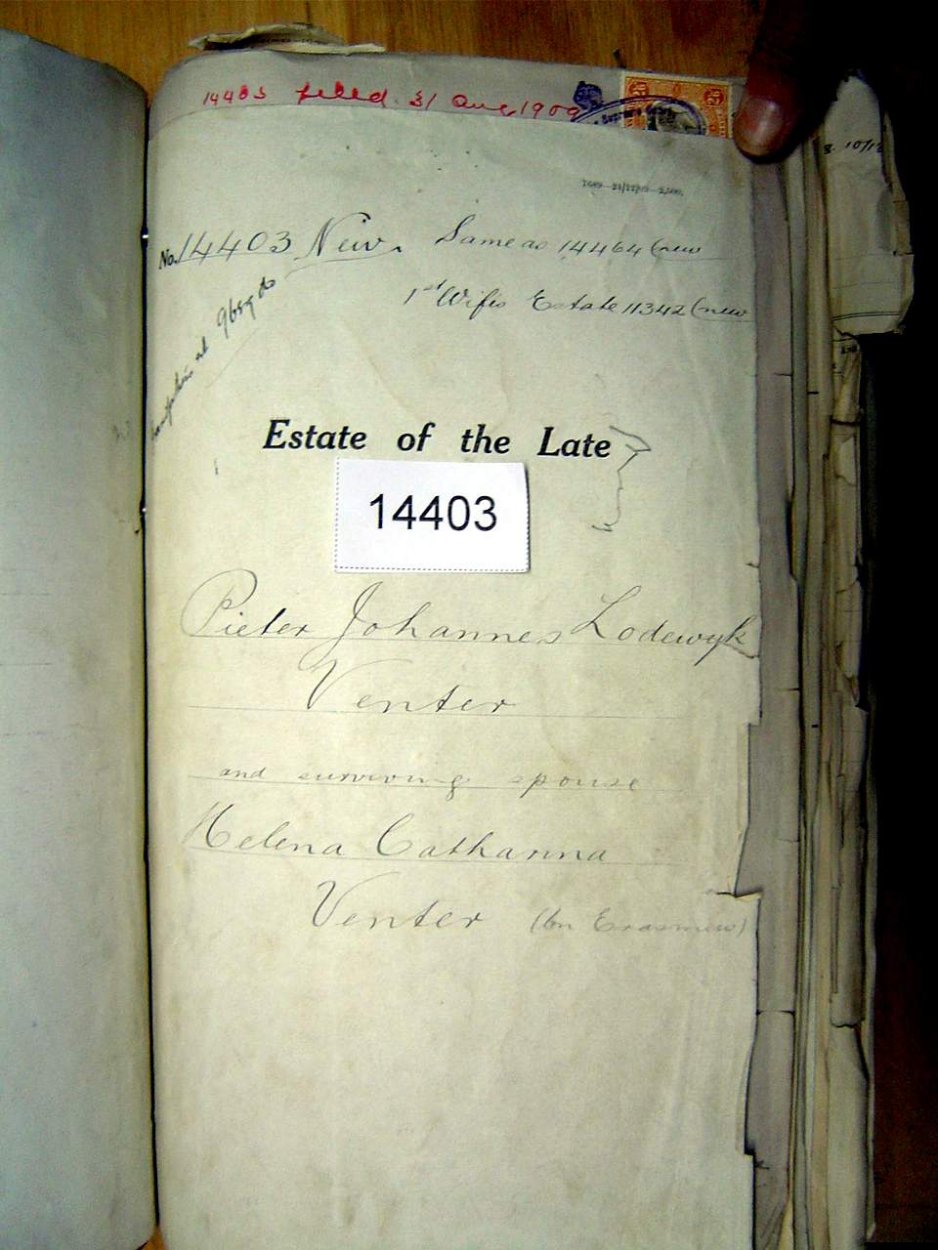 14403 filed. 31 Aug 1909
Supreme Court
No. 14403 New. Same as 14464 (new
1st Wifes Estate 11342 (new
at 9659 do
Estate of the Late
14403
Pieter Johannes Lodewyk
Venter
and surviving spouse
Helena Catharina
Venter (bn Erasmus)